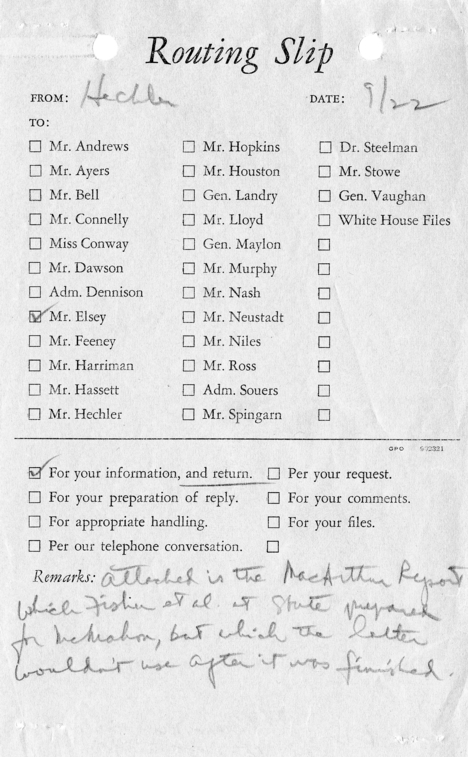 Routing Slip
FROM: Hechler DATE: 9/22
TO:
☐ Mr. Andrews ☐ Mr. Hopkins ☐ Dr. Steelman
☐ Mr. Ayers ☐ Mr. Houston ☐ Mr. Stowe
☐ Mr. Bell ☐ Gen. Landry ☐ Gen. Vaughan
☐ Mr. Connelly ☐ Mr. Lloyd ☐ White House Files
☐ Miss Conway ☐ Gen. Maylon ☐
☐ Mr. Dawson ☐ Mr. Murphy ☐
☐ Adm. Dennison ☐ Mr. Nash ☐
☑ Mr. Elsey ☐ Mr. Neustadt ☐
☐ Mr. Feeney ☐ Mr. Niles ☐
☐ Mr. Harriman ☐ Mr. Ross ☐
☐ Mr. Hassett ☐ Adm. Souers ☐
☐ Mr. Hechler ☐ Mr. Spingarn ☐
GPO
☑ For your information, and return. ☐ Per your request.
☐ For your preparation of reply. ☐ For your comments.
☐ For appropriate handling. ☐ For your files.
☐ Per our telephone conversation. ☐
Remarks: Attached is the MacArthur Report
which Fisher et al. at State prepared
for McMahon, but which the latter
wouldn't use after it was finished.